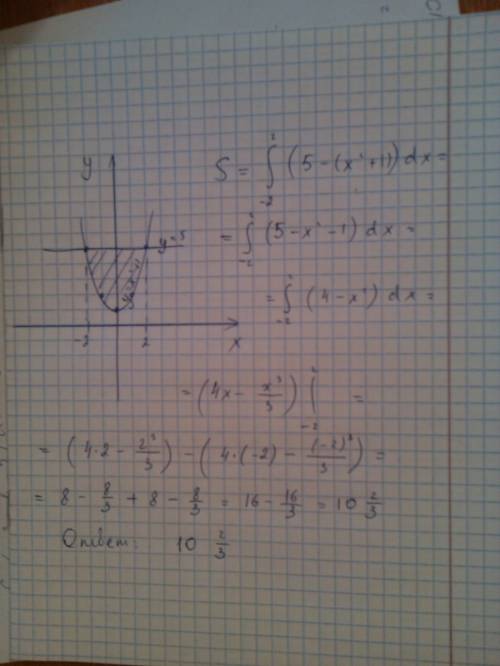 y
S = ∫₋₂² (5 − (x² + 1)) dx =
= ∫₋₂² (5 − x² − 1) dx =
y = 5
y = x² + 1
= ∫₋₂² (4 − x²) dx =
−2 2 x
= (4x − x³/3) |₋₂² =
= (4·2 − 2³/3) − (4·(−2) − (−2)³/3) =
= 8 − 8/3 + 8 − 8/3 = 16 − 16/3 = 10 2/3
Ответ: 10 2/3